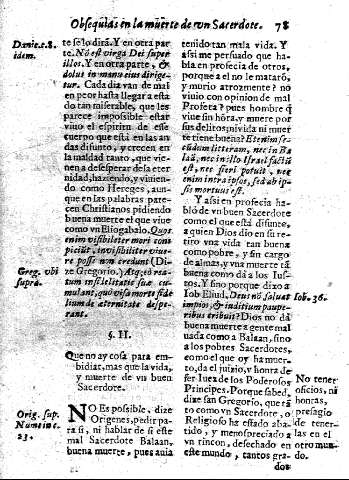 Obsequias en la muerte de vn Sacerdote. 78
Danie.c.8.
idem.
te se lo dirà. Y en otra par
te. No est virga Dei super
illos. Y en otra parte, &
dolus in manu eius dirige-
tur. Cada dia van de mal
en peor hasta llegar a esta
do tan miserable, que les
parece impossible estar
viuo el espiritu de esse
cuerpo que está en las an
das difunto, y crecen en
la maldad tanto, que vie-
nen a desesperar de la eter
nidad, haziendo, y viuien-
do como Hereges, aun-
que en las palabras pare-
cen Christianos pidiendo
buena muerte el que viue
como vn Eliogabalo. Quos
enim visibiliter mori cons
piciũt, inuisibiliter viue-
re posse non credunt (Di-
Greg. vbi
suprà.
ze Gregorio.) Atq; eò rea-
tum infidelitatis suæ cu-
mulant, quò visa morte fide
lium de æternitate despe-
rant.
§. II.
Que no ay cosa para em-
bidiar, mas que la vida,
y muerte de vn buen
Sacerdote.
Orig. sup.
Num. in c.
23.
NO Es possible, dize
Origenes, pedir pa-
ra si, ni hablar de si este
mal Sacerdote Balaan,
buena muerte, pues auia
tenido tan mala vida. Y
assi me persuado que ha-
bla en profecia de otros,
porque a el no le mataró,
y murio atrozmente? no
viuio con opinion de mal
Profeta? pues hombre q̃
viue sin hõra, y muere por
sus delitos; ni vida ni muer
te tiene buena? Etenim se-
cũdum litteram, nec in Ba
laã, nec in illo Israel factũ
est, nec fieri potuit, nec
enim intra ipsos, sed ab ip-
sis mortuus est.
Y assi en profecia ha-
bló de vn buen Sacerdote
como el que está difunte,
a quien Dios dio en su re-
tiro vna vida tan buena
como pobre, y sin cargo
de almas, y vna muerte tã
buena como dà a los Ius-
tos. Y sino porque dixo a
Iob Eliud. Deus nõ saluat
Iob. 36.
impios, & iuditium paupe-
ribus tribuit? Dios no dà
buena muerte a gente mal
uada como a Balaan, sino
a los pobres Sacerdotes,
como el que oy ha muer-
to, da el juizio, y honra de
ser Iuez de los Poderosos
Principes. Porque sabed,
dize san Gregorio, que tã
to como vn Sacerdote, o
Religioso ha estado aba-
tido, y menospreciado a
vn rincon, desechado en
este mundo, tantos gra-
No tener
oficios, ni
honras,
presagio
de tener-
las en el
otro mun-
do.
dos